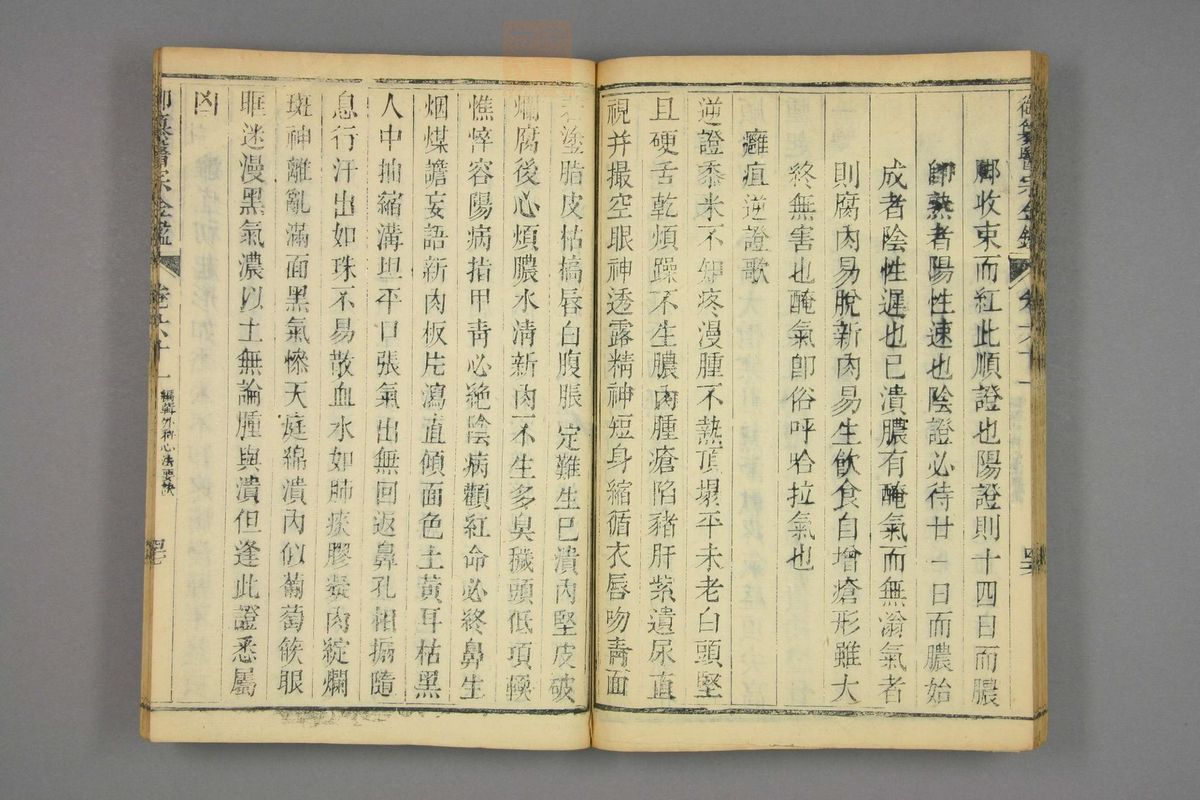 御纂醫宗金鑑
卷六十一
脚收束而紅此順證也陽證則十四日而膿
卽熟者陽性速也陰證必待廿一日而膿始
成者陰性遲也已潰膿有醃氣而無滃氣者
則腐肉易脫新肉易生飲食自增瘡形雖大
終無害也醃氣卽俗呼哈拉氣也
癰疽逆證歌
逆證黍米不知疼漫腫不熱頂塌平未老白頭堅
且硬舌乾煩躁不生膿肉腫瘡陷豬肝紫遺尿直
視并撮空眼神透露精神短身縮循衣唇吻靑面
若塗脂皮枯槁唇白腹脹定難生已潰內堅皮破
爛腐後心煩膿水淸新肉不生多臭穢頭低項軃
憔悴容陽病指甲靑必絶陰病顴紅命必終鼻生
烟煤譫妄語新肉板片瀉直傾面色土黃耳枯黑
人中抽縮溝坦平口張氣出無回返鼻孔相搧隨
息行汗出如珠不易散血水如肺痰膠凝肉綻爛
斑神離亂滿面黑氣慘天庭綿潰內似葡萄簇眼
眶迷漫黑氣濃以土無論腫與潰但逢此證悉屬
凶
御纂醫宗金鑑
卷六十一
編輯外科心法要訣